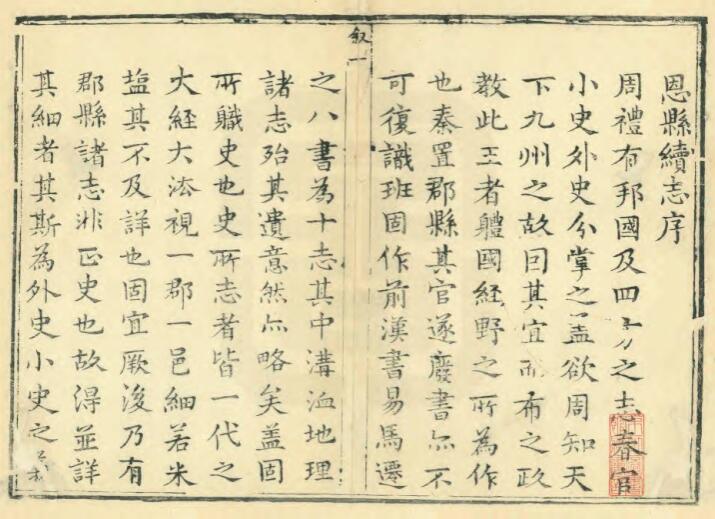 恩縣續志序
周禮有邦國及四方之志春官
小史外史分掌之盖欲周知天
下九州之故囙其宜而布之政
教此王者軆國経野之所為作
也秦置郡縣其官遂廢書亦不
可復識班固作前漢書易馬遷
叙一
之八書為十志其中溝洫地理
諸志殆其遺意然亦略矣盖固
所軄史也史所志者皆一代之
大経大法視一郡一邑細若米
塩其不及詳也固宜厥後乃有
郡縣諸志非正史也故得並詳
其細者其斯為外史小史之